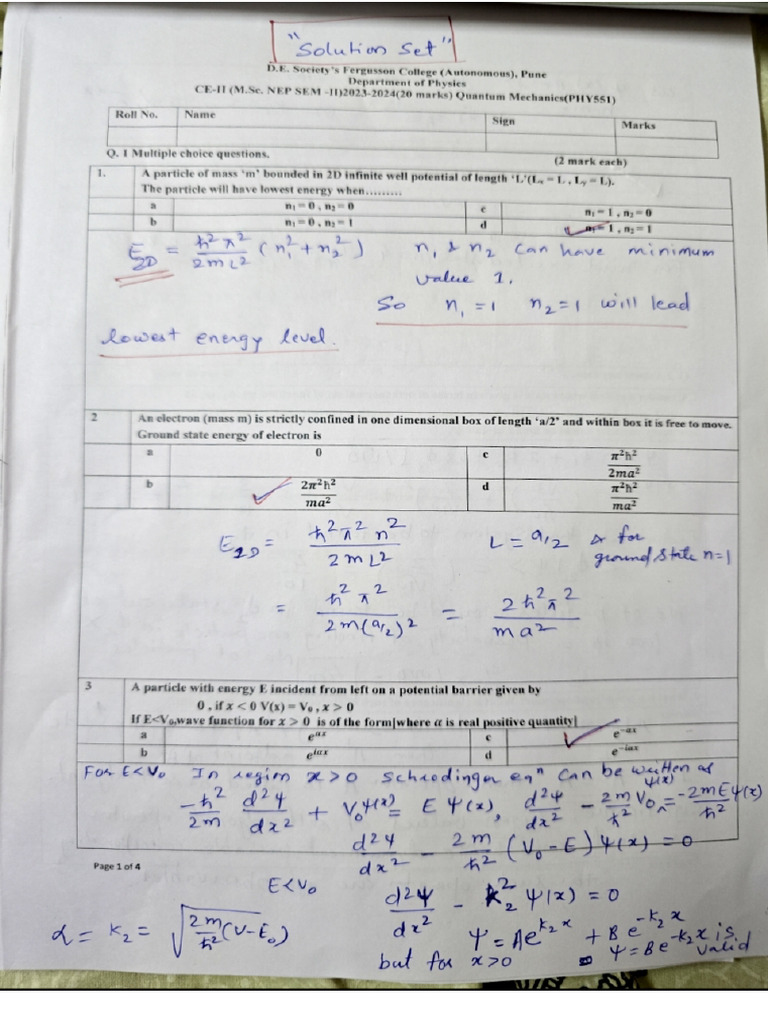 "Solution Set"
D.E. Society's Fergusson College (Autonomous), Pune
Department of Physics
CE-II (M.Sc. NEP SEM -II)2023-2024(20 marks) Quantum Mechanics(PHY551)
Roll No. Name Sign Marks
Q. 1 Multiple choice questions. (2 mark each)
1. A particle of mass 'm' bounded in 2D infinite well potential of length 'L'(Lₓ = L , Lᵧ = L).
The particle will have lowest energy when.........
a n₁ = 0 , n₂ = 0 c n₁ = 1 , n₂ = 0
b n₁ = 0 , n₂ = 1 d ✓ n₁ = 1 , n₂ = 1
E_2D = ħ²π²/2mL² (n₁² + n₂²) n₁ & n₂ can have minimum
value 1.
So n₁ = 1 n₂ = 1 will lead
lowest energy level.
2 An electron (mass m) is strictly confined in one dimensional box of length 'a/2' and within box it is free to move.
Ground state energy of electron is
a 0 c π²ħ²/2ma²
b ✓ 2π²ħ²/ma² d π²ħ²/ma²
E_1D = ħ²π²n²/2mL² L = a/2 & for
ground state n=1
= ħ²π²/2m(a/2)² = 2ħ²π²/ma²
3 A particle with energy E incident from left on a potential barrier given by
0 , if x < 0 V(x) = V₀ , x > 0
If E<V₀,wave function for x > 0 is of the form[where α is real positive quantity]
a e^αx c ✓ e^-αx
b e^iαx d e^-iαx
For E<V₀ In region x>0 Schrodinger eqⁿ can be written as
-ħ²/2m d²ψ/dx² + V₀ψ(x) = Eψ(x), d²ψ/dx² - 2m/ħ² V₀ψ(x) = -2mEψ(x)/ħ²
d²ψ/dx² - 2m/ħ² (V₀-E)ψ(x) = 0
Page 1 of 4
E<V₀ d²ψ/dx² - k₂² ψ(x) = 0
α = k₂ = √(2m/ħ² (V-E₀)) ψ = Ae^k₂x + Be^-k₂x
but for x>0 ψ = Be^-k₂x is valid